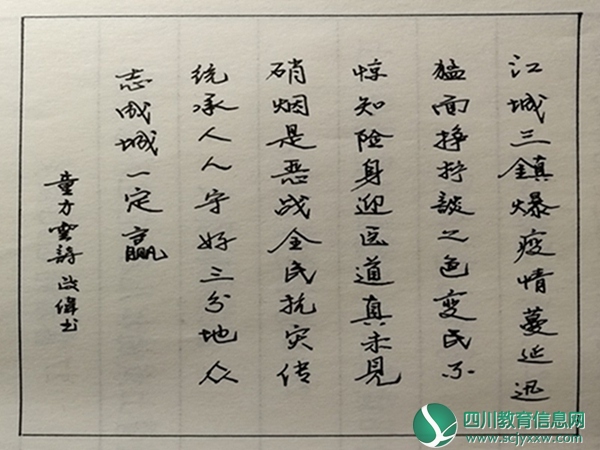 江城三鎮爆疫情蔓延迅
猛面狰狞談之色变民不
惊知险身迎医道真未見
硝烟是恶战全民抗灾传
统承人人守好三分地众
志成城一定赢
童方雲詩 政偉书
四川教育信息网
www.scjyxxw.com